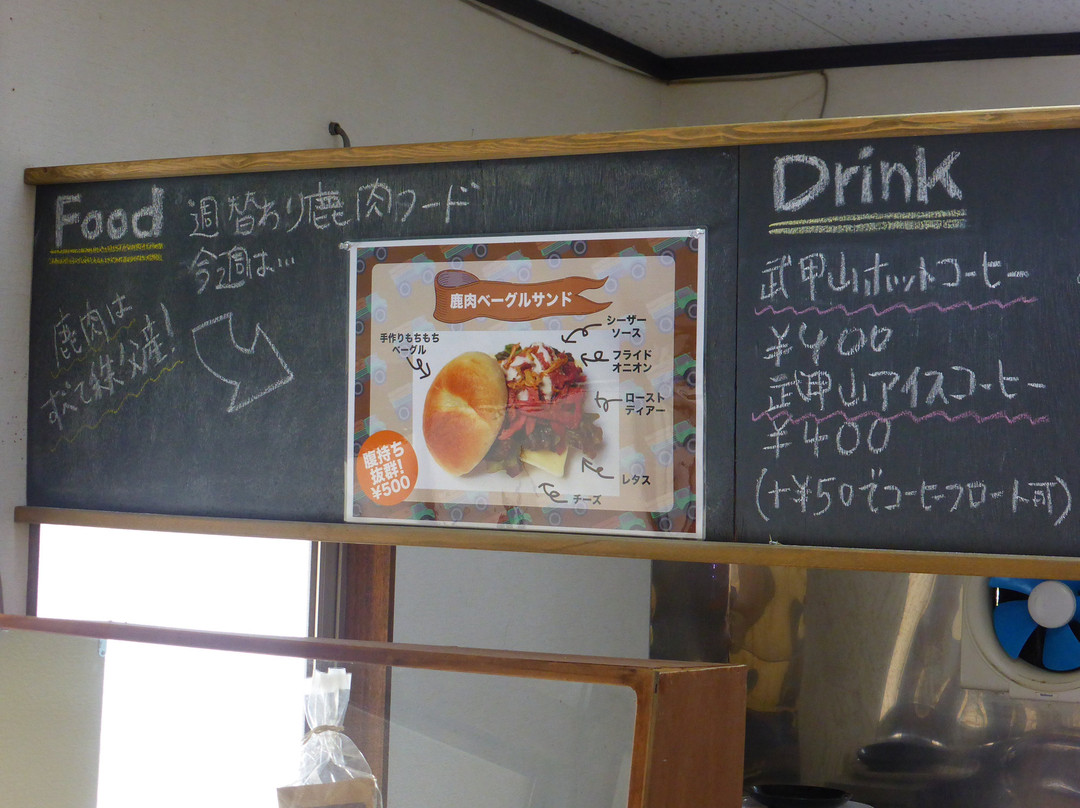 Food
週替わり鹿肉フード
今週は...
鹿肉は
すべて秩父産!
鹿肉ベーグルサンド
手作りもちもち
ベーグル
シーザー
ソース
フライド
オニオン
ロースト
ディアー
レタス
チーズ
腹持ち
抜群!
¥500
Drink
武甲山ホットコーヒー
¥400
武甲山アイスコーヒー
¥400
(+¥50でコーヒーフロート可)